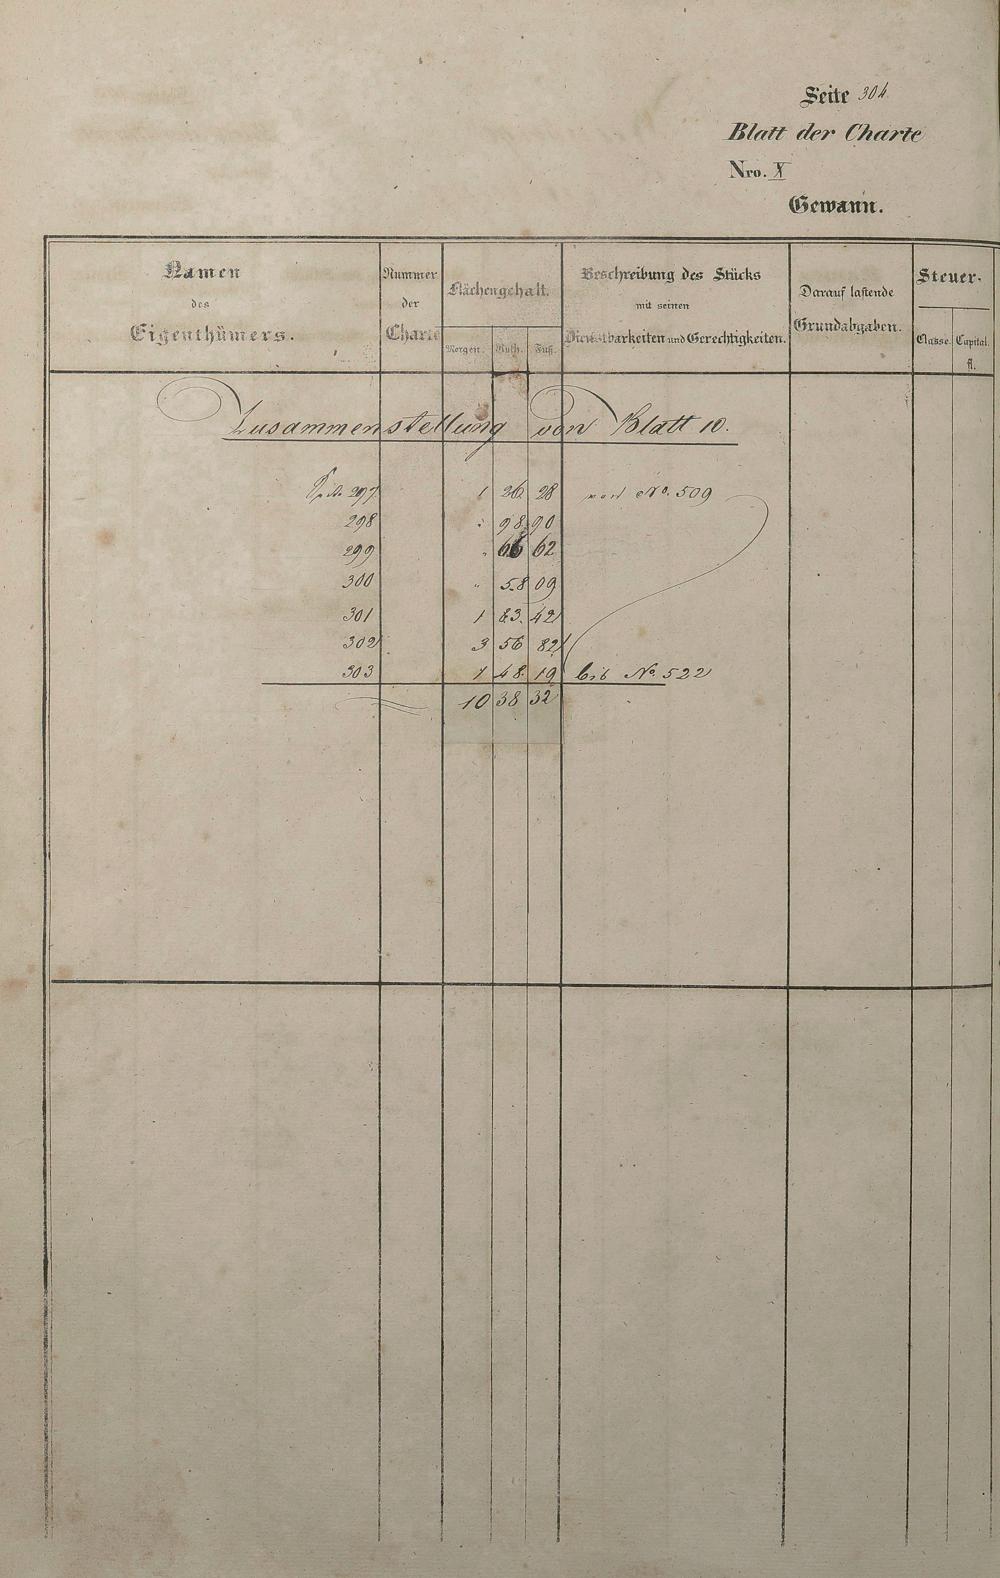 Seite 304.
Blatt der Charte
Nro. X
Gewann.
Namen
des
Eigenthümers.
Nummer
der
Charte
Flächengehalt.
Morgen. Ruth. Fuß.
Beschreibung des Stücks
mit seinen
Dienstbarkeiten und Gerechtigkeiten.
Darauf lastende
Grundabgaben.
Steuer-
Classe. Capital.
fl.
Zusammenstellung von Blatt 10.
Seite 297 1 26 28 von No. 509
298 " 98 90
299 " 66 62
300 " 58 09
301 1 83 42
302 3 56 82
303 1 48 19 bis No. 522
10 38 32